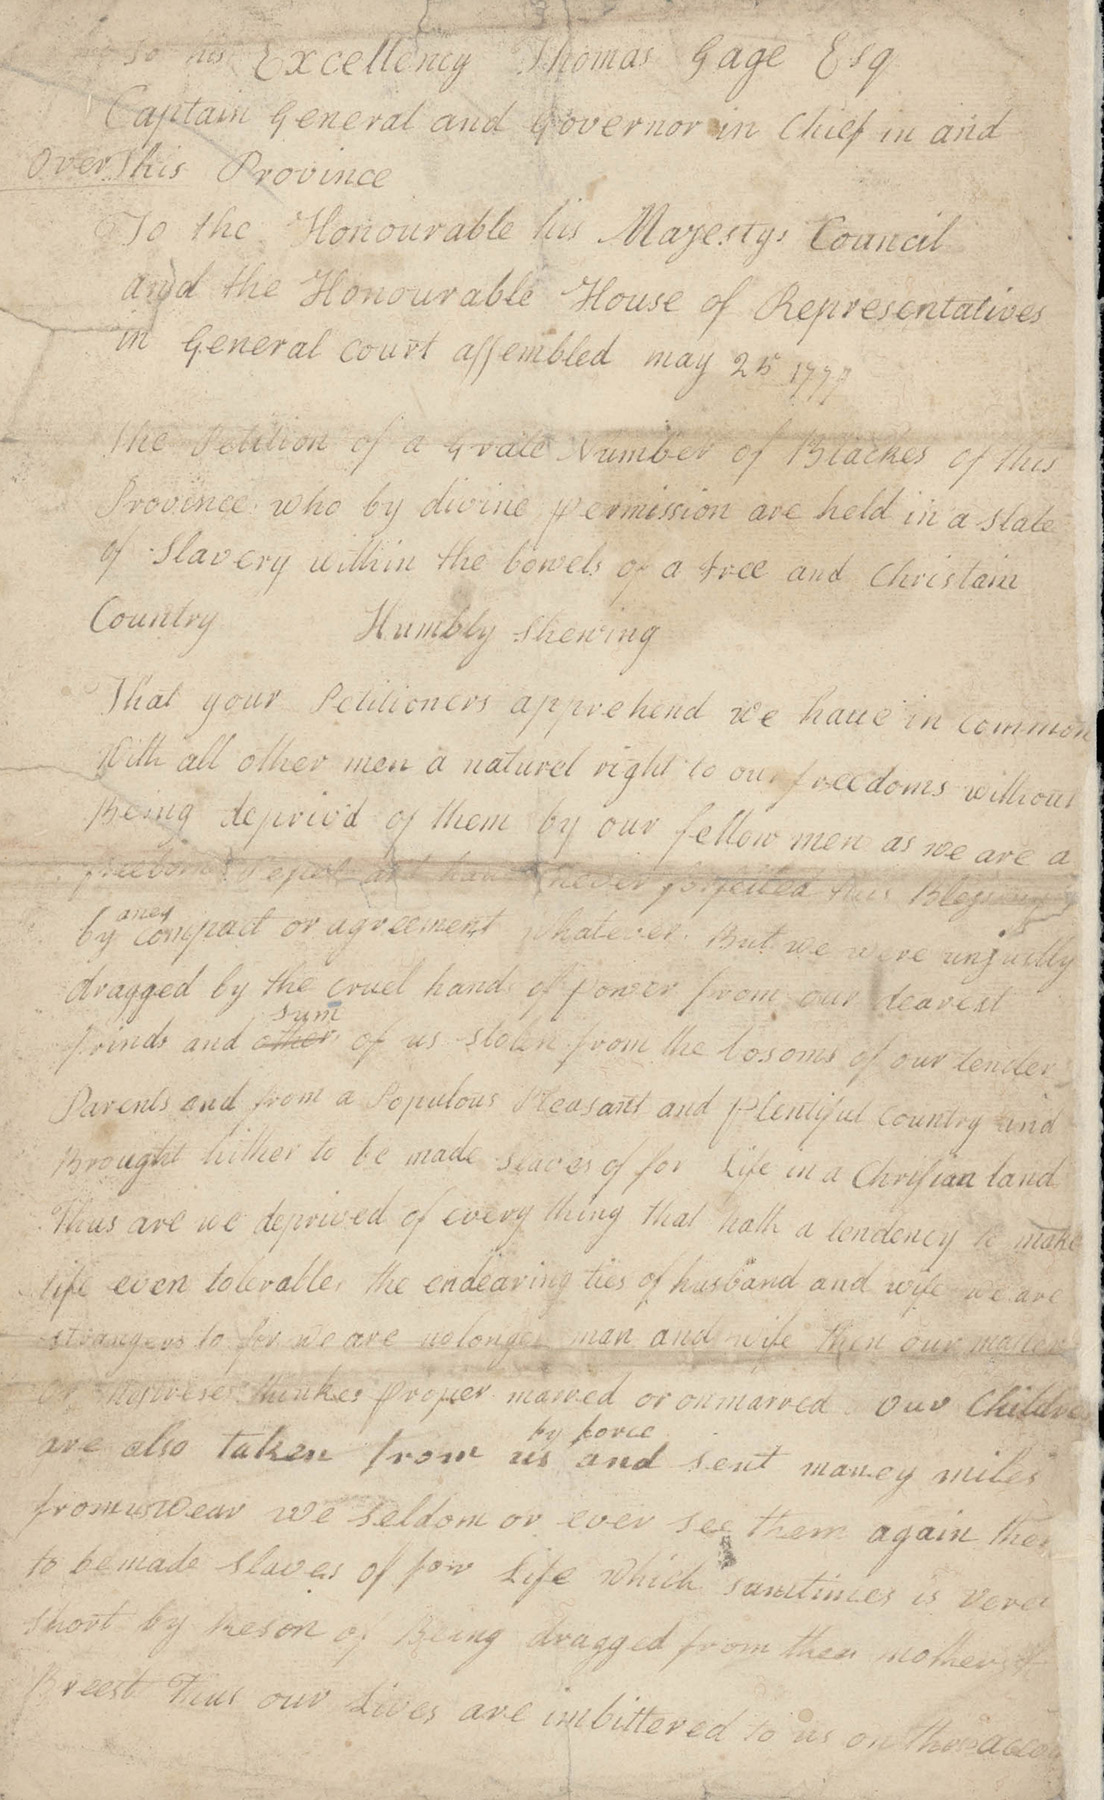 To his Excellency Thomas Gage Esq
Captain General and Governor in Chief in and
Over This Province
To the Honourable his Majestys Council
and the Honourable House of Representatives
in General Court assembled may 25 1777
The Petition of a Grate Number of Blackes of this
Province who by divine permission are held in a state
of Slavery within the bowels of a free and Christain
Country Humbly Shewing
That your Petitioners apprehend we have in common
With all other men a naturel right to our freedoms without
Being depriv'd of them by our fellow men as we are a
freeborn Pepel and have never forfeited this Blessing
aney
by compact or agreement whatever. But we were unjustly
dragged by the cruel hand of power from our dearest
sum
frinds and other of us stolen from the bosoms of our tender
Parents and from a Populous Pleasant and plentiful country and
Brought hither to be made slaves of for Life in a Christian land
Thus are we deprived of every thing that hath a tendency to make
life even tolerable, the endearing ties of husband and wife we are
strangers to for we are no longer man and wife then our
or mestreses thinkes proper marred or onmarred Our Children
by force
are also taken from us and sent maney miles
from us wear we seldom or ever see them again
to be made slaves of for Life which sumtimes is vere
short by Reson of Being dragged from their mothers
Breest Thus our Lives are imbittered to us on these